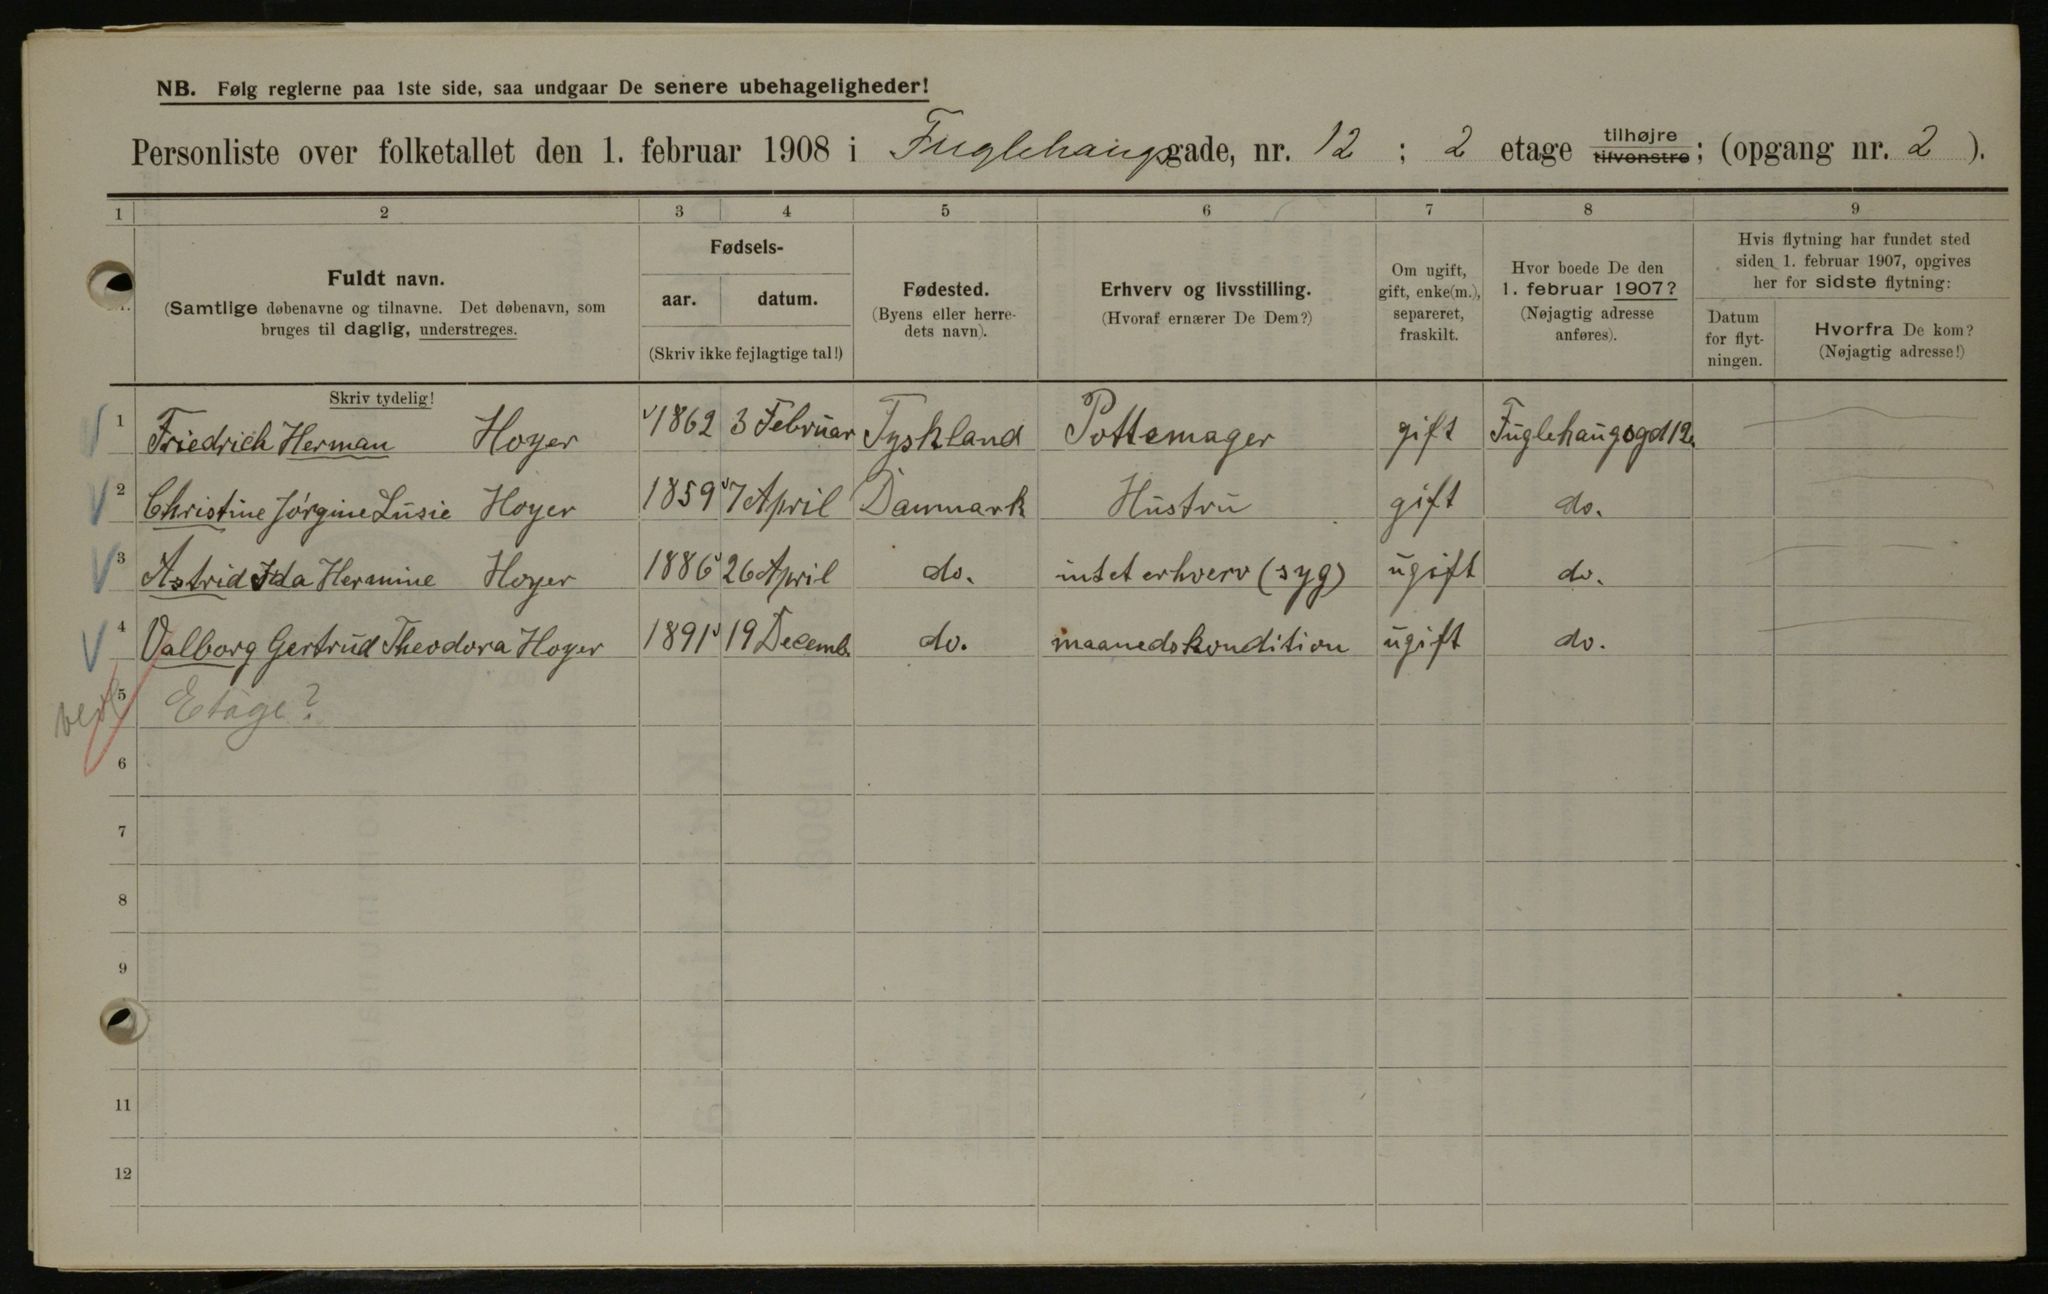 NB. Følg reglerne paa 1ste side, saa undgaar De senere ubehageligheder!
Personliste over folketallet den 1. februar 1908 i Fuglehaugsgade, nr. 12 ; 2 etage tilhøjre tilvenstre; (opgang nr. 2 ).
1 2 3 4 5 6 7 8 9
Fuldt navn.
(Samtlige døbenavne og tilnavne. Det døbenavn, som
bruges til daglig, understreges.
Skriv tydelig!
Fødsels-
aar. datum.
(Skriv ikke fejlagtige tal!)
Fødested.
(Byens eller herre-
dets navn).
Erhverv og livsstilling.
(Hvoraf ernærer De Dem?)
Om ugift,
gift, enke(m.),
separeret,
fraskilt.
Hvor boede De den
1. februar 1907?
(Nøjagtig adresse
anføres).
Hvis flytning har fundet sted
siden 1. februar 1907, opgives
her for sidste flytning:
Datum
for flyt-
ningen.
Hvorfra De kom?
(Nøjagtig adresse!)
1 Friedrich Herman Hoyer 1862 3 Februar Tyskland Pottemager gift Fuglehaugsgd 12
2 Christine Jørgine Lusie Hoyer 1859 7 April Danmark Hustru gift do.
3 Astrid Ida Hermine Hoyer 1886 26 April do. intet erhverv (syg) ugift do.
4 Valborg Gertrud Theodora Hoyer 1891 19 Decemb. do. maanedskondition ugift do.
5 Etage?
6
7
8
9
11
12